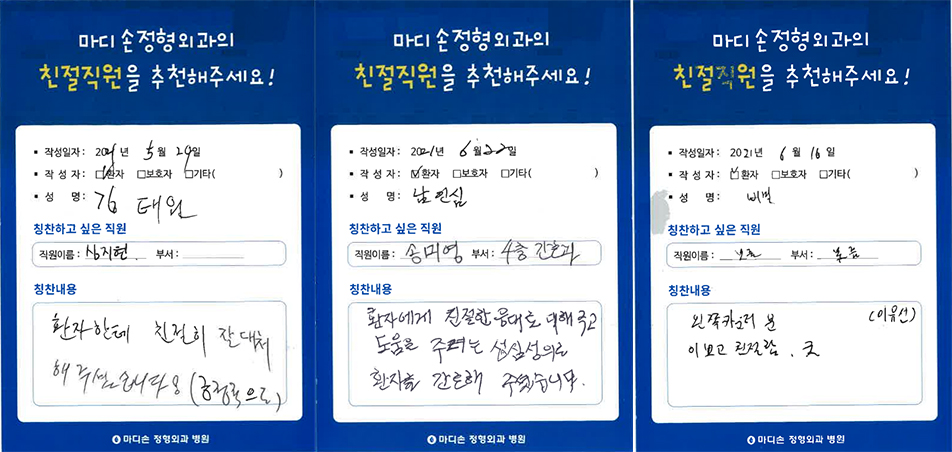 마디 손정형외과의
친절직원을 추천해주세요!
작성일자: 2021년 5월 29일
작성자: 환자 보호자 기타( )
성 명: 김태원
칭찬하고 싶은 직원
직원이름: 심지현 부서:
칭찬내용
환자한테 친절히 잘 대처
해 주셨습니다. (긍정적으로)
마디손 정형외과 병원
마디 손정형외과의
친절직원을 추천해주세요!
작성일자: 2021년 6월 22일
작성자: 환자 보호자 기타( )
성 명: 남연심
칭찬하고 싶은 직원
직원이름: 송미영 부서: 4층 간호과
칭찬내용
환자에게 친절한 응대로 대해주고
도움을 주려는 성심성의로
환자를 간호해 주었습니다.
마디손 정형외과 병원
마디 손정형외과의
친절직원을 추천해주세요!
작성일자: 2021년 6월 16일
작성자: 환자 보호자 기타( )
성 명: 비밀
칭찬하고 싶은 직원
직원이름: 모름 부서: 모름
칭찬내용
왼쪽카운터 분 (이유선)
이쁘고 친절함.
마디손 정형외과 병원